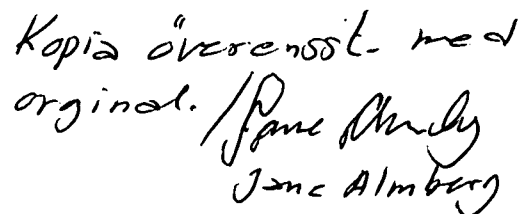 Kopia överensst. med
orginal. /
Jane Almberg